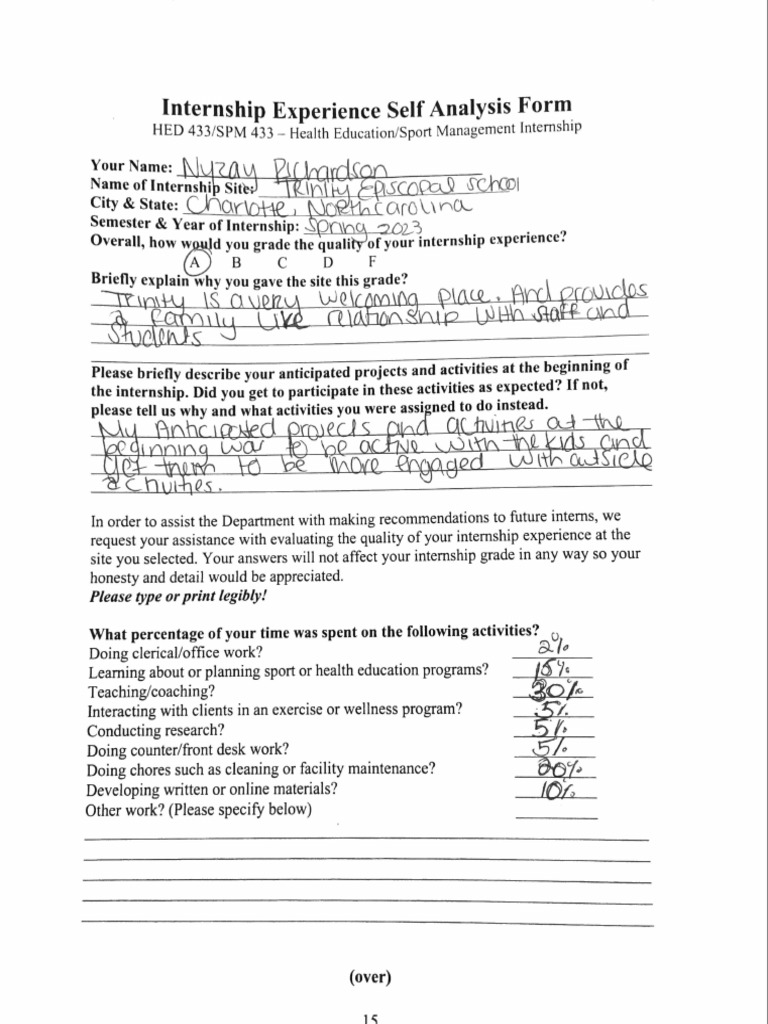 Internship Experience Self Analysis Form
HED 433/SPM 433 – Health Education/Sport Management Internship
Your Name: Nyzay Richardson
Name of Internship Site: Trinity Episcopal school
City & State: Charlotte, North carolina
Semester & Year of Internship: Spring 2023
Overall, how would you grade the quality of your internship experience?
A B C D F
Briefly explain why you gave the site this grade?
Trinity is a very welcoming place. And provides
a family like relationship with staff and
students
Please briefly describe your anticipated projects and activities at the beginning of
the internship. Did you get to participate in these activities as expected? If not,
please tell us why and what activities you were assigned to do instead.
My Anticipated projects and activities at the
beginning was to be active with the kids and
get them to be more engaged with outside
activities.
In order to assist the Department with making recommendations to future interns, we
request your assistance with evaluating the quality of your internship experience at the
site you selected. Your answers will not affect your internship grade in any way so your
honesty and detail would be appreciated.
Please type or print legibly!
What percentage of your time was spent on the following activities?
Doing clerical/office work? 2%
Learning about or planning sport or health education programs? 15%
Teaching/coaching? 30%
Interacting with clients in an exercise or wellness program? 5%
Conducting research? 5%
Doing counter/front desk work? 5%
Doing chores such as cleaning or facility maintenance? 20%
Developing written or online materials? 10%
Other work? (Please specify below)
(over)
15